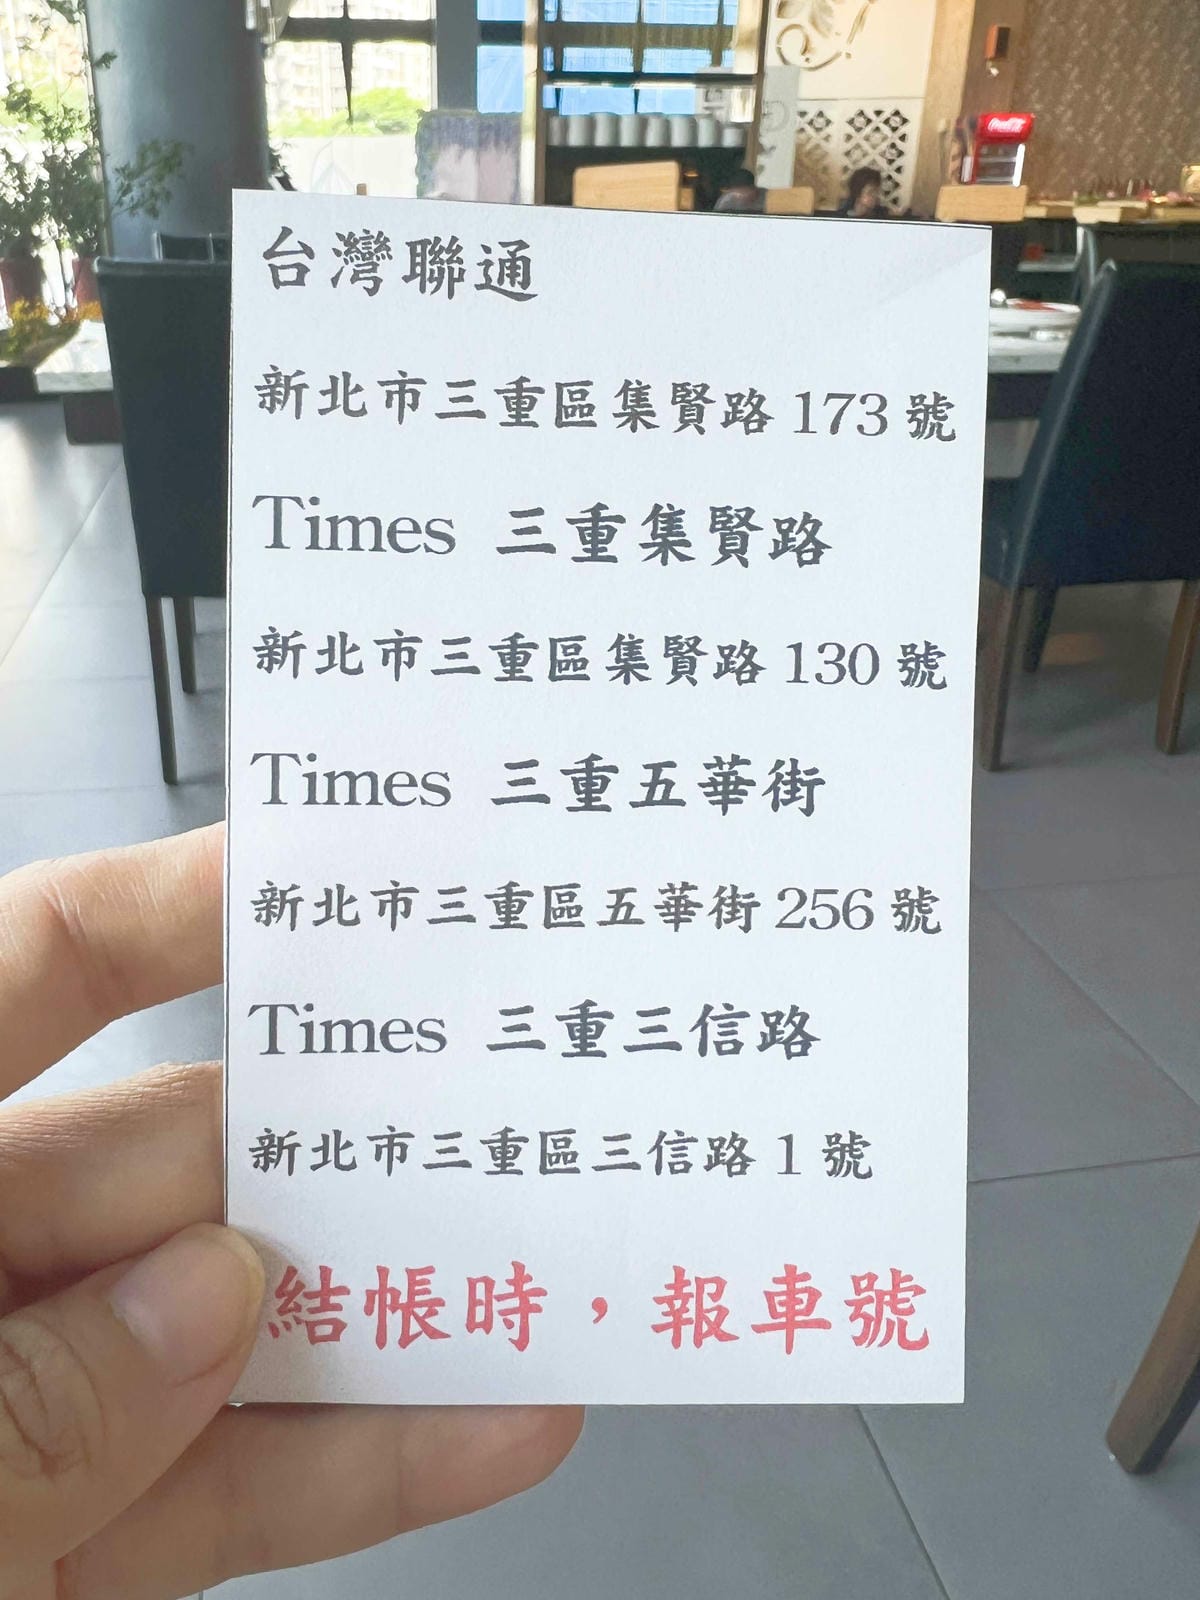 台灣聯通
新北市三重區集賢路 173 號
Times 三重集賢路
新北市三重區集賢路 130 號
Times 三重五華街
新北市三重區五華街 256 號
Times 三重三信路
新北市三重區三信路 1 號
結帳時，報車號
Coca-Cola